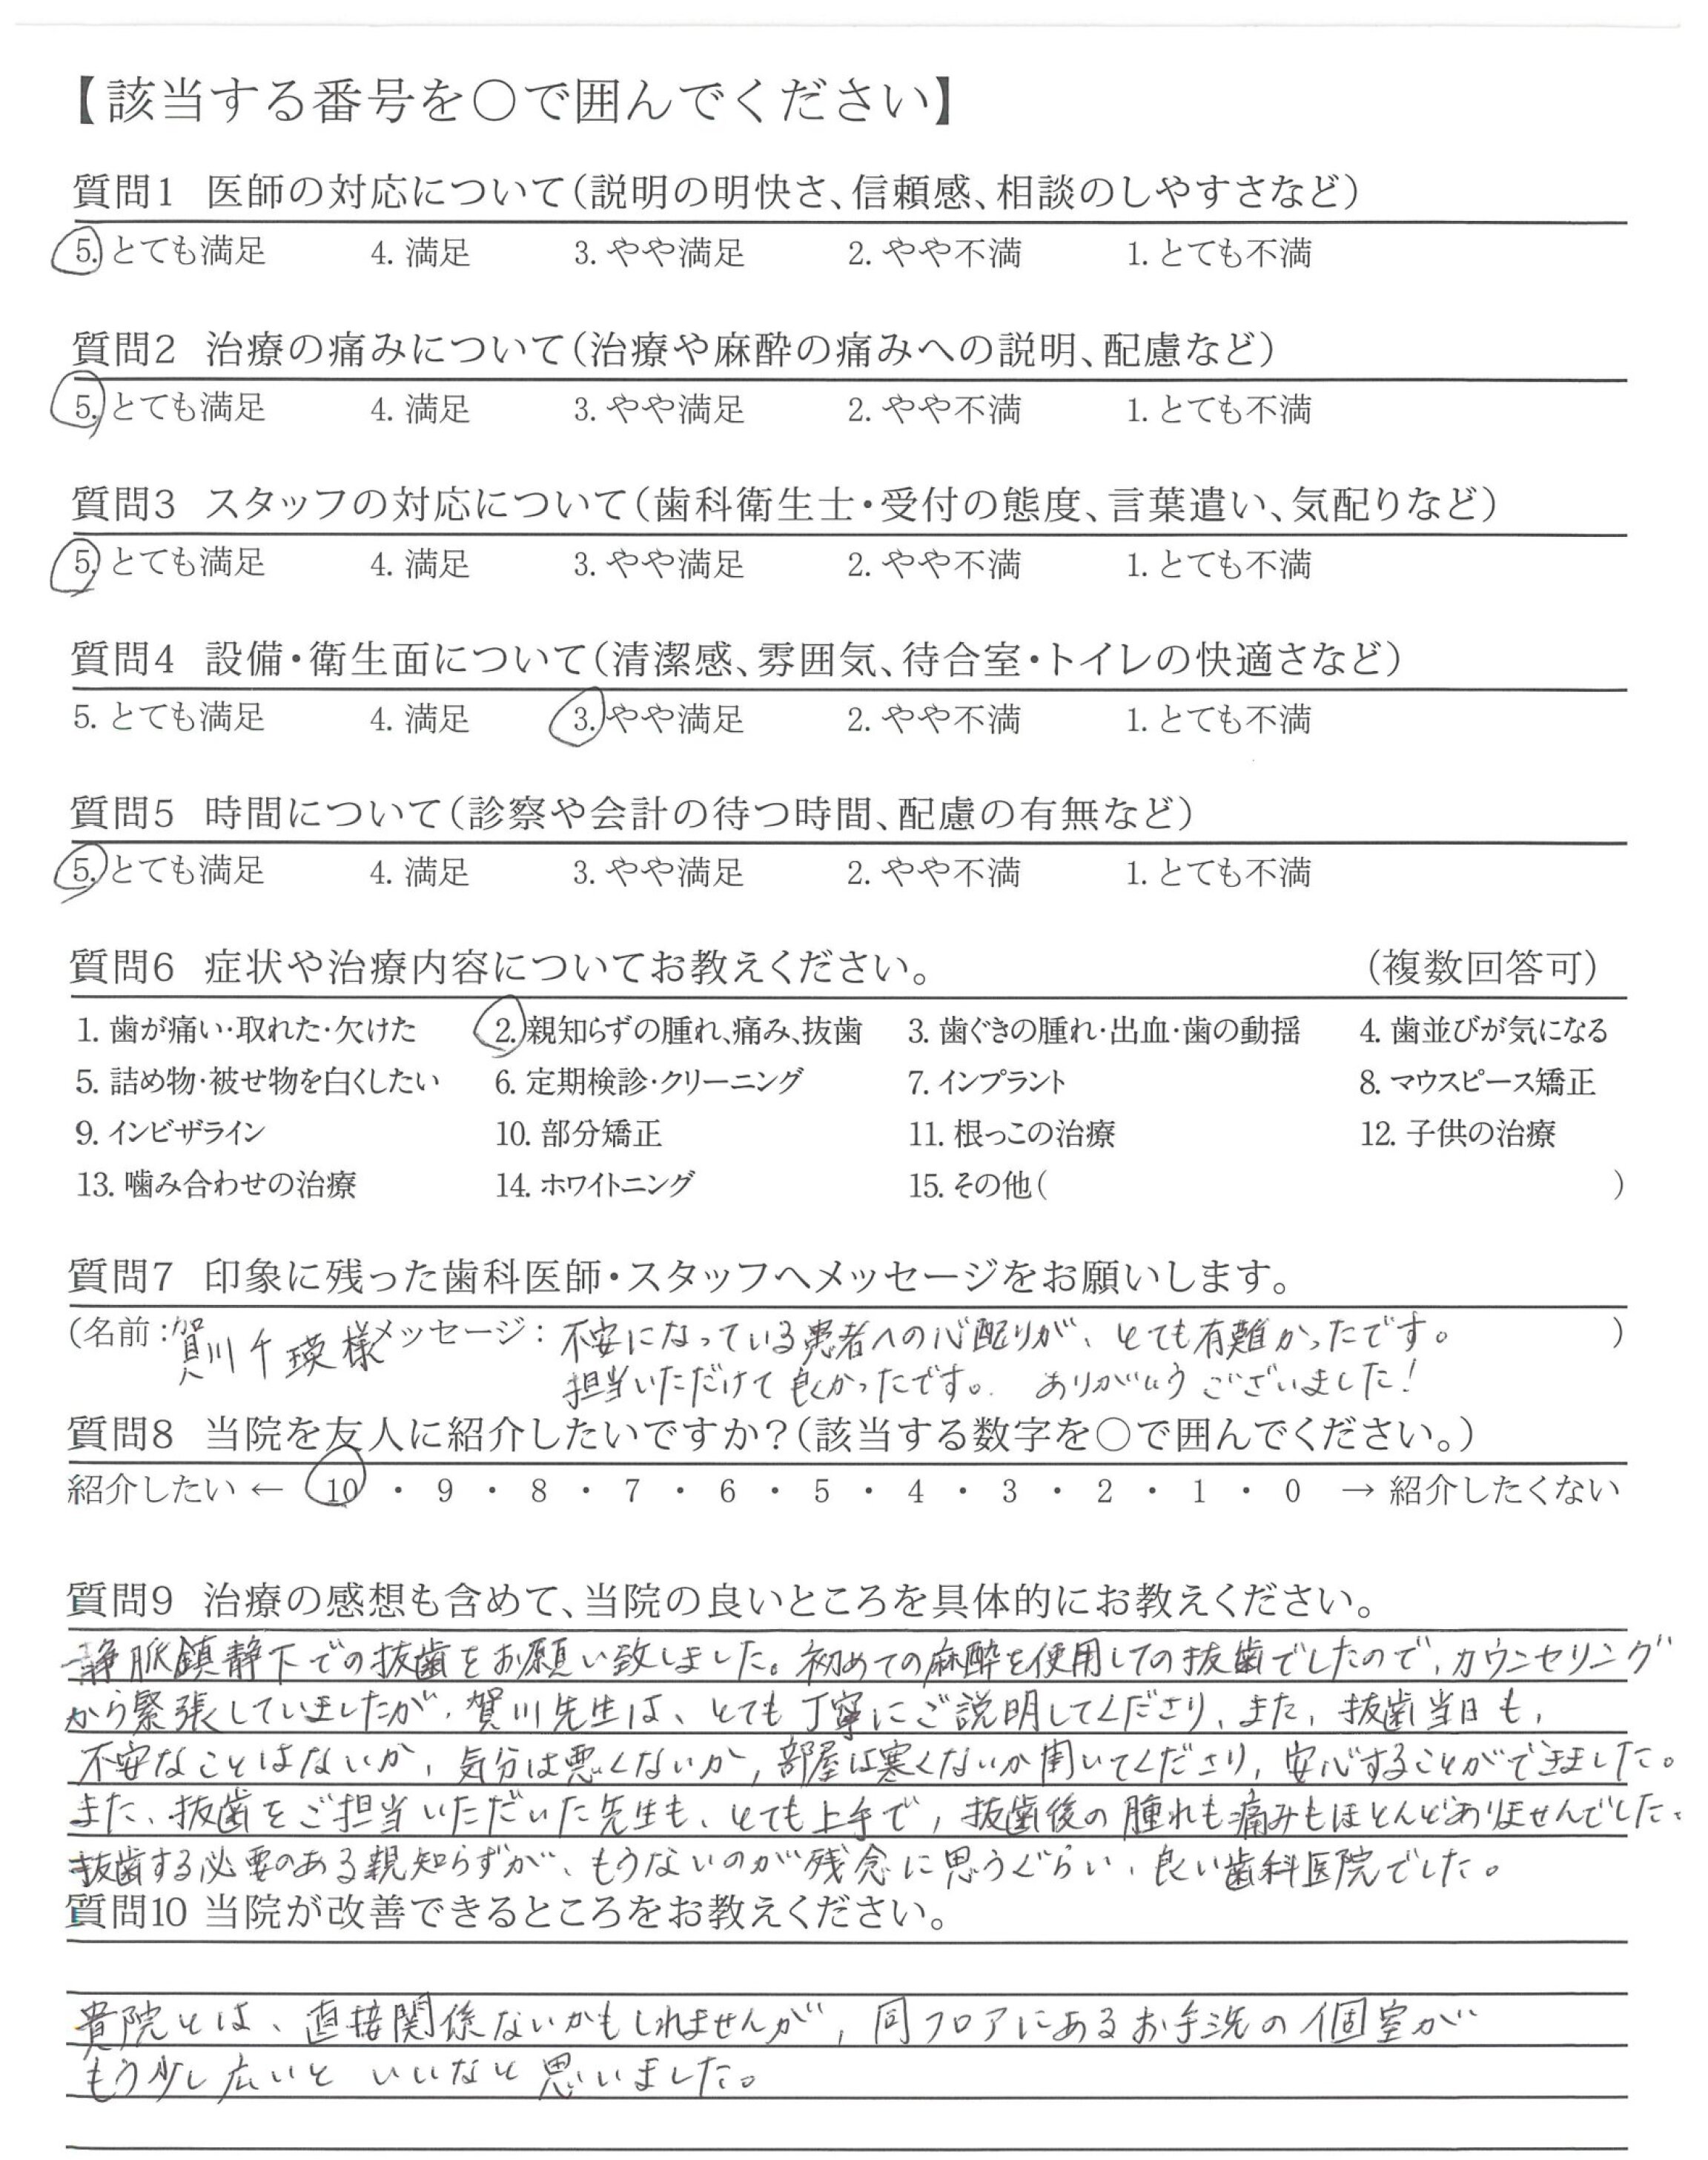 【該当する番号を○で囲んでください】
質問1 医師の対応について(説明の明快さ、信頼感、相談のしやすさなど)
5. とても満足 4. 満足 3. やや満足 2. やや不満 1. とても不満
質問2 治療の痛みについて(治療や麻酔の痛みへの説明、配慮など)
5. とても満足 4. 満足 3. やや満足 2. やや不満 1. とても不満
質問3 スタッフの対応について(歯科衛生士・受付の態度、言葉遣い、気配りなど)
5. とても満足 4. 満足 3. やや満足 2. やや不満 1. とても不満
質問4 設備・衛生面について(清潔感、雰囲気、待合室・トイレの快適さなど)
5. とても満足 4. 満足 3. やや満足 2. やや不満 1. とても不満
質問5 時間について(診察や会計の待つ時間、配慮の有無など)
5. とても満足 4. 満足 3. やや満足 2. やや不満 1. とても不満
質問6 症状や治療内容についてお教えください。 (複数回答可)
1. 歯が痛い・取れた・欠けた 2. 親知らずの腫れ、痛み、抜歯 3. 歯ぐきの腫れ・出血・歯の動揺 4. 歯並びが気になる
5. 詰め物・被せ物を白くしたい 6. 定期検診・クリーニング 7. インプラント 8. マウスピース矯正
9. インビザライン 10. 部分矯正 11. 根っこの治療 12. 子供の治療
13. 噛み合わせの治療 14. ホワイトニング 15. その他( )
質問7 印象に残った歯科医師・スタッフへメッセージをお願いします。
(名前:賀川千瑛様 メッセージ: 不安になっている患者への心配りが、とても有難かったです。 )
担当いただけて良かったです。 ありがとうございました!
質問8 当院を友人に紹介したいですか?(該当する数字を○で囲んでください。)
紹介したい ← 10 ・ 9 ・ 8 ・ 7 ・ 6 ・ 5 ・ 4 ・ 3 ・ 2 ・ 1 ・ 0 → 紹介したくない
質問9 治療の感想も含めて、当院の良いところを具体的にお教えください。
静脈鎮静下での抜歯をお願い致しました。初めての麻酔を使用しての抜歯でしたので、カウンセリング
から緊張していましたが、賀川先生は、とても丁寧にご説明してくださり、また、抜歯当日も、
不安なことはないか、気分は悪くないか、部屋は寒くないか聞いてくださり、安心することができました。
また、抜歯をご担当いただいた先生も、とても上手で、抜歯後の腫れも痛みもほとんどありませんでした。
抜歯する必要のある親知らずが、もうないのが残念に思うぐらい、良い歯科医院でした。
質問10 当院が改善できるところをお教えください。
貴院とは、直接関係ないかもしれませんが、同フロアにあるお手洗の個室が
もう少し広いと いいなと思いました。